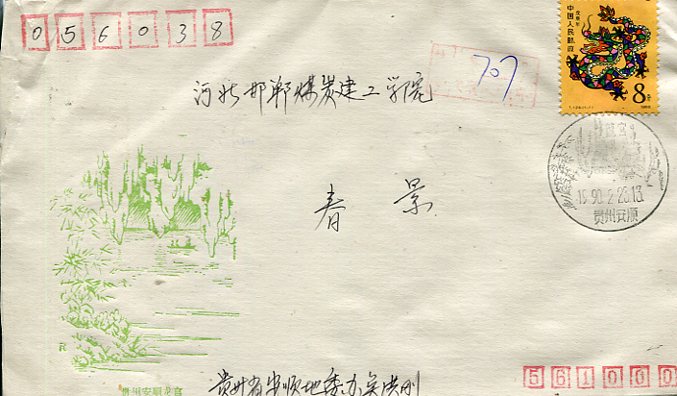 056038
戊辰年
中国人民邮政
8分
T.124.(1-1)
1988
707
河北邯郸煤炭建工学院
龙宫
1990.2.26.13
贵州安顺
春景
贵州安顺龙宫
贵州省安顺地委办吴洪刚
561000